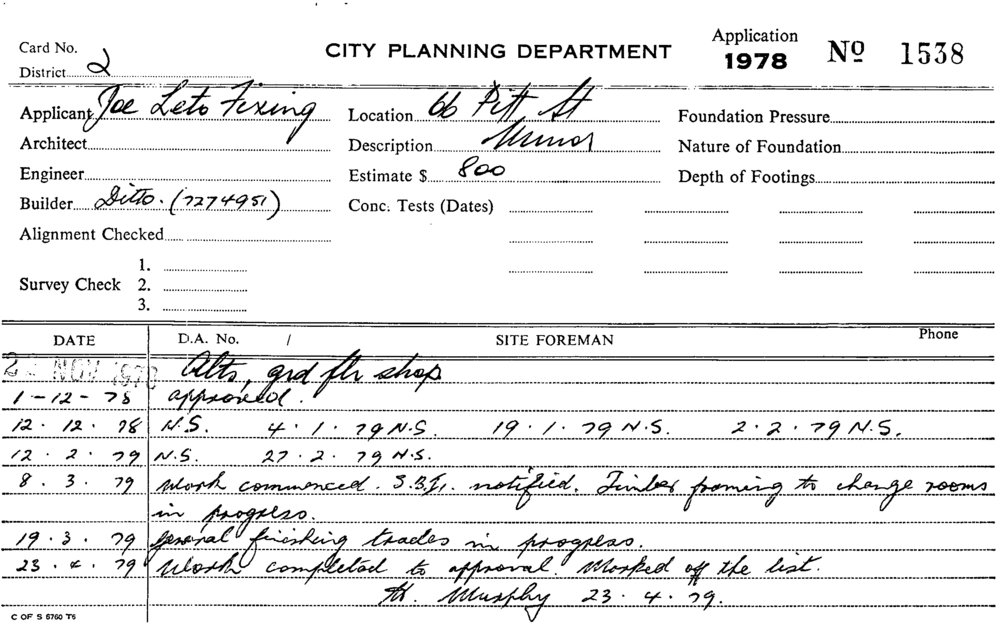 Card No. CITY PLANNING DEPARTMENT Application 1978 Nº 1538
District 2
Applicant Joe Leto Fixing Location 66 Pitt St Foundation Pressure
Architect Description Minor Nature of Foundation
Engineer Estimate $ 800 Depth of Footings
Builder Ditto. (7274951) Conc. Tests (Dates)
Alignment Checked
1.
Survey Check 2.
3.
DATE D.A. No. / SITE FOREMAN Phone
NOV 1978 Alts, grd flr shop
1-12-78 approved.
12.12.78 N.S. 4.1.79 N.S. 19.1.79 N.S. 2.2.79 N.S.
12.2.79 N.S. 27.2.79 N.S.
8.3.79 Work commenced. S.B.I. notified. Timber framing to change rooms
in progress.
19.3.79 general finishing trades in progress.
23.4.79 Work completed to approval. Marked off the list.
Murphy 23.4.79.
C OF S 5760 T5